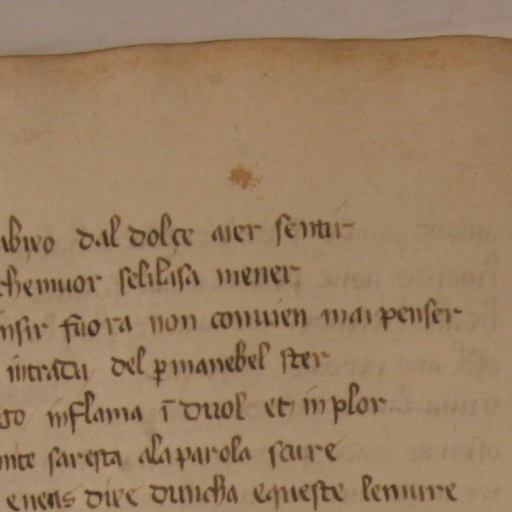 dal dolçe aier sentir
chemuor selilasa mener
insir fuora non conuien mai penser
intrada del pmanebel ster
go inflama ī duol et in plor
saresta ala parola scure
eneas dire duncha equeste lemure